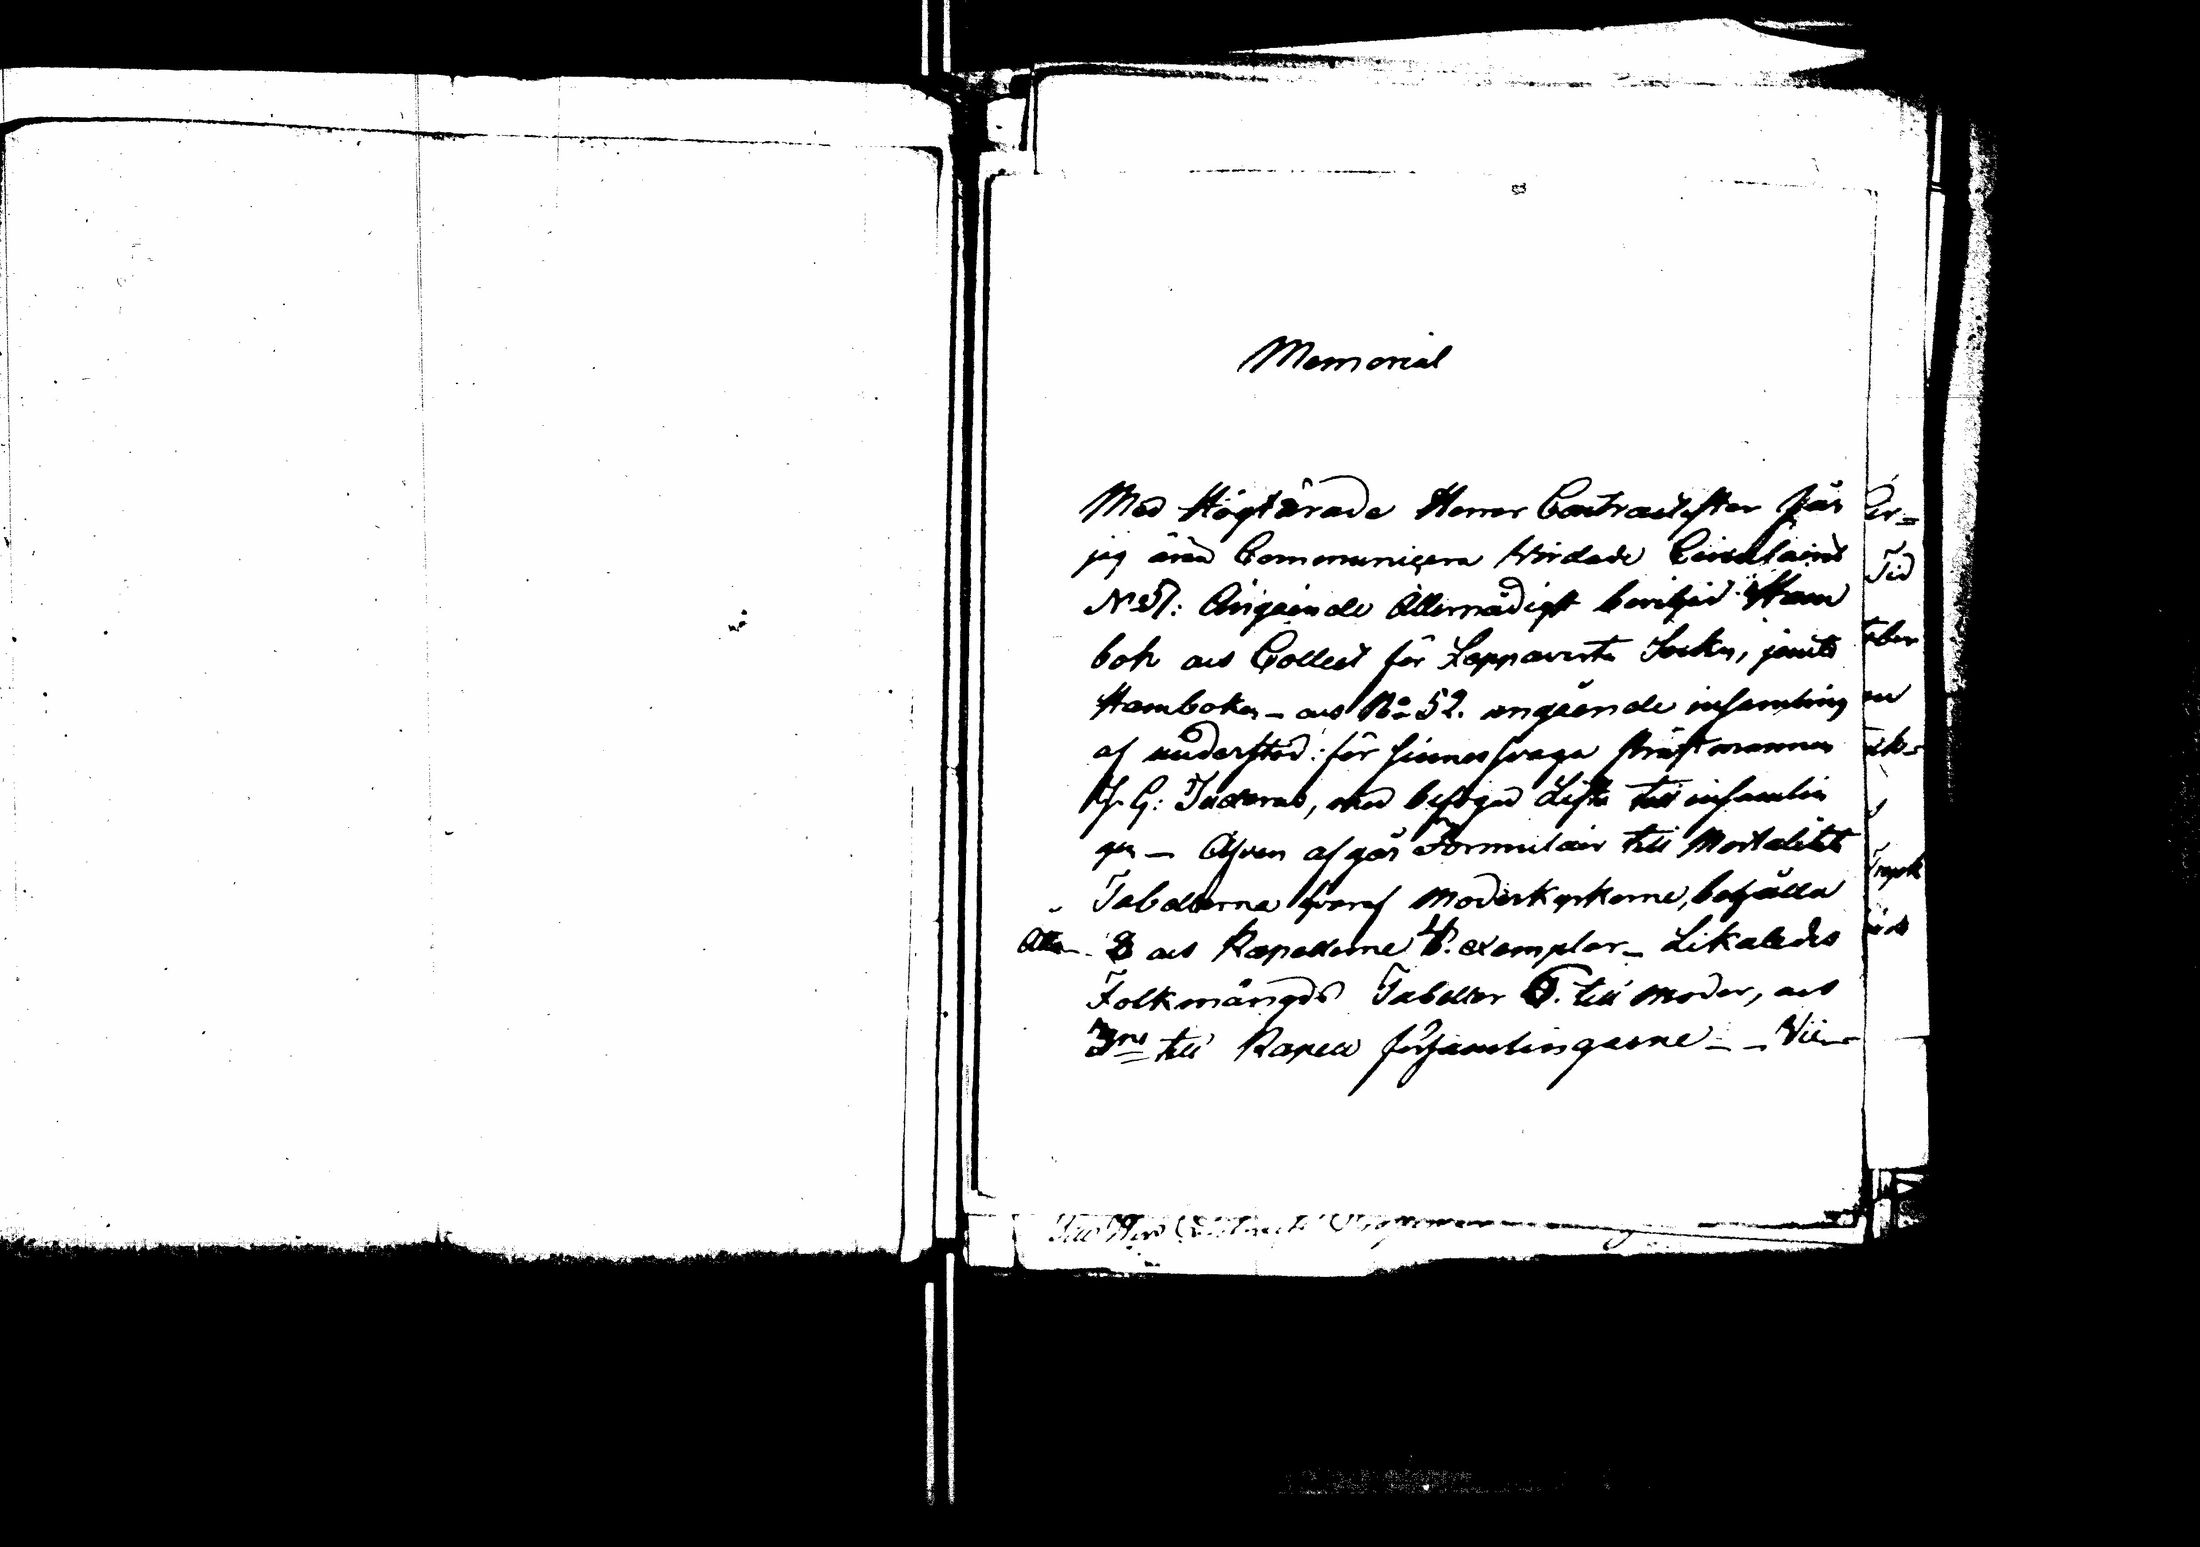 Memorial
Med Högtärade Herrar Contractister får
jag äran Communicera Wördade Circulairet
N:o 51: Angående Allernådigst beviljad Stam
bok och Collect för Leppävirta Socken, jemte
Stamboken – och N:o 52. angående insamling
af understöd för sinnessvaga Prästmannen
J. G: Indrenus, med bifogad Lista till insamlin
gen – Äfven afgår Formulair till Mortalitets
Tabellerna hvaraf Moderkyrkorne, behålla
Åtta – 8 och Kapellerne 4. exemplar – Likaledes
Folkmängds Tabeller till Moder, och
3ne till Kapell församlingarne –